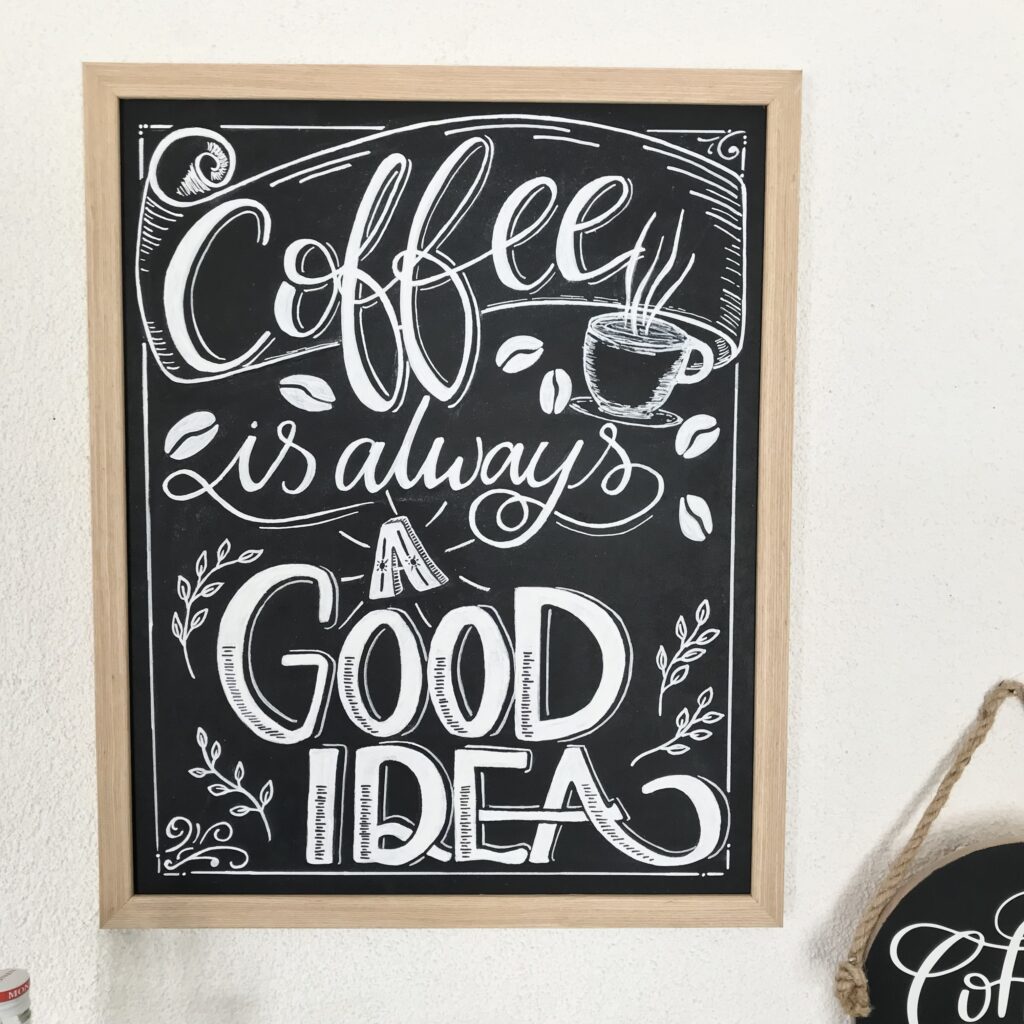 Coffee
is always
A
GOOD
IDEA